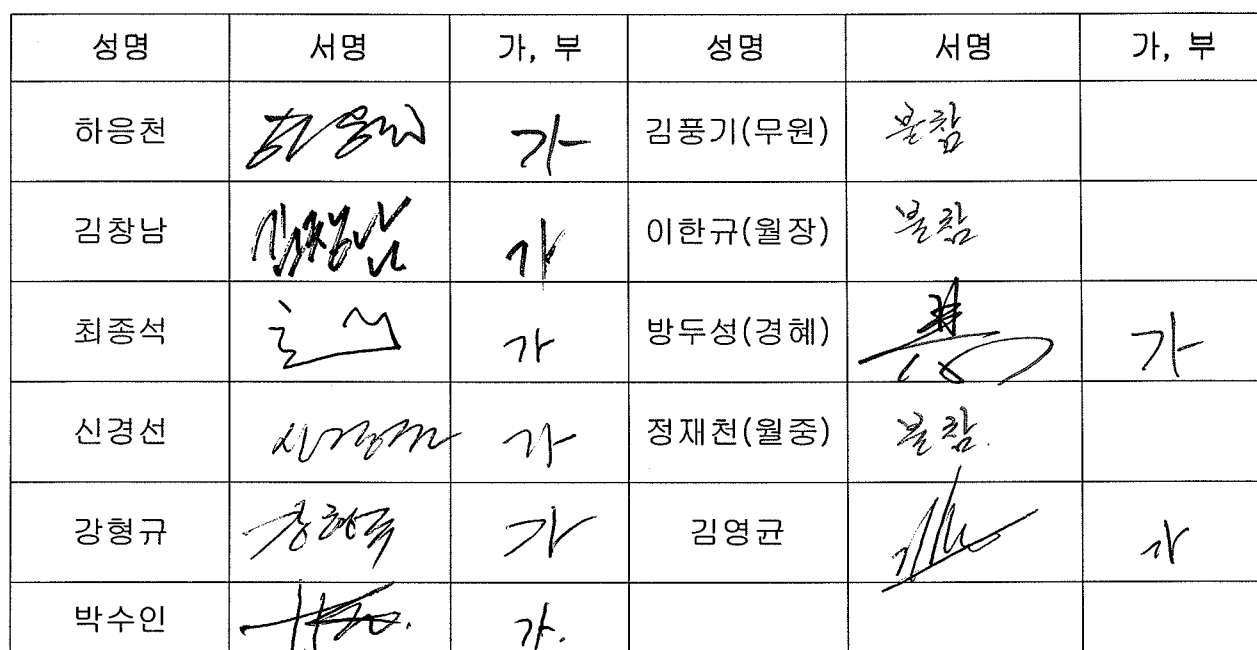 성명 서명 가, 부 성명 서명 가, 부
하응천 하응천 가 김풍기(무원) 불참
김창남 김창남 가 이한규(월장) 불참
최종석 가 방두성(경혜) 가
신경선 신경선 가 정재천(월중) 불참.
강형규 강형규 가 김영균 가
박수인 가.